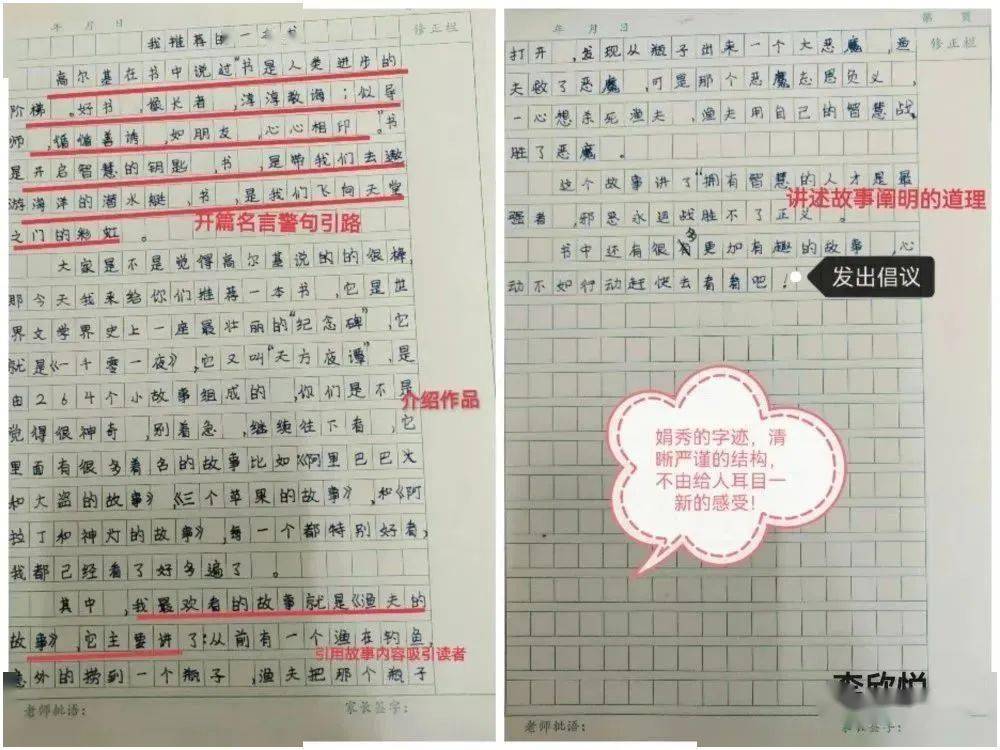 年 月 日
修正栏
我推荐的一本书
高尔基在书中说过"书是人类进步的
阶梯。好书，像长者，谆谆教诲；似导
师，循循善诱，如朋友，心心相印。"书
是开启智慧的钥匙，书，是带我们去遨
游海洋的潜水艇，书，是我们飞向天堂
之门的彩虹。
开篇名言警句引路
大家是不是觉得高尔基说的的很棒，
那今天我来给你们推荐一本书，它是世
界文学界史上一座最壮丽的"纪念碑"，它
就是《一千零一夜》，它又叫"天方夜谭"，是
由264个小故事组成的，你们是不是
介绍作品
觉得很神奇，别着急，继续往下看，它
里面有很多着名的故事比如《阿里巴巴
和大盗的故事》，《三个苹果的故事》，和《阿
拉丁和神灯的故事》，每一个都特别好看，
我都已经看了好多遍了。
其中，我最欢看的故事就是《渔夫的
故事》，它主要讲了：从前有一个渔在钓鱼，
引用故事内容吸引读者
意外的捞到一个瓶子，渔夫把那个瓶子
老师批语：
家长签字：
年 月 日
第 页
修正栏
打开，发现从瓶子出来一个大恶魔，渔
夫放了恶魔，可是那个恶魔忘恩负义，
一心想杀死渔夫，渔夫用自己的智慧战
胜了恶魔。
这个故事讲了"拥有智慧的人才是最
讲述故事阐明的道理
强者，邪恶永远战胜不了正义。
书中还有很多更加有趣的故事，心
动不如行动赶快去看看吧！
发出倡议
娟秀的字迹，清
晰严谨的结构，
不由给人耳目一
新的感受！
李欣悦
老师批语：
家长签字：